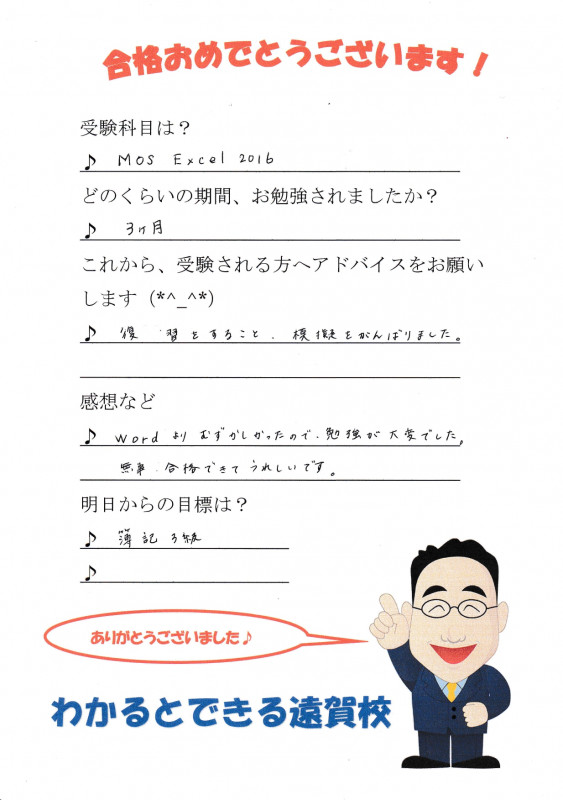 合格おめでとうございます！
受験科目は？
♪ MOS Excel 2016
どのくらいの期間、お勉強されましたか？
♪ 3ヶ月
これから、受験される方へアドバイスをお願い
します（*^_^*）
♪ 復習をすること、模擬をがんばりました。
感想など
♪ Wordよりむずかしかったので、勉強が大変でした。
無事、合格できてうれしいです。
明日からの目標は？
♪ 簿記3級
♪
ありがとうございました♪
わかるとできる遠賀校